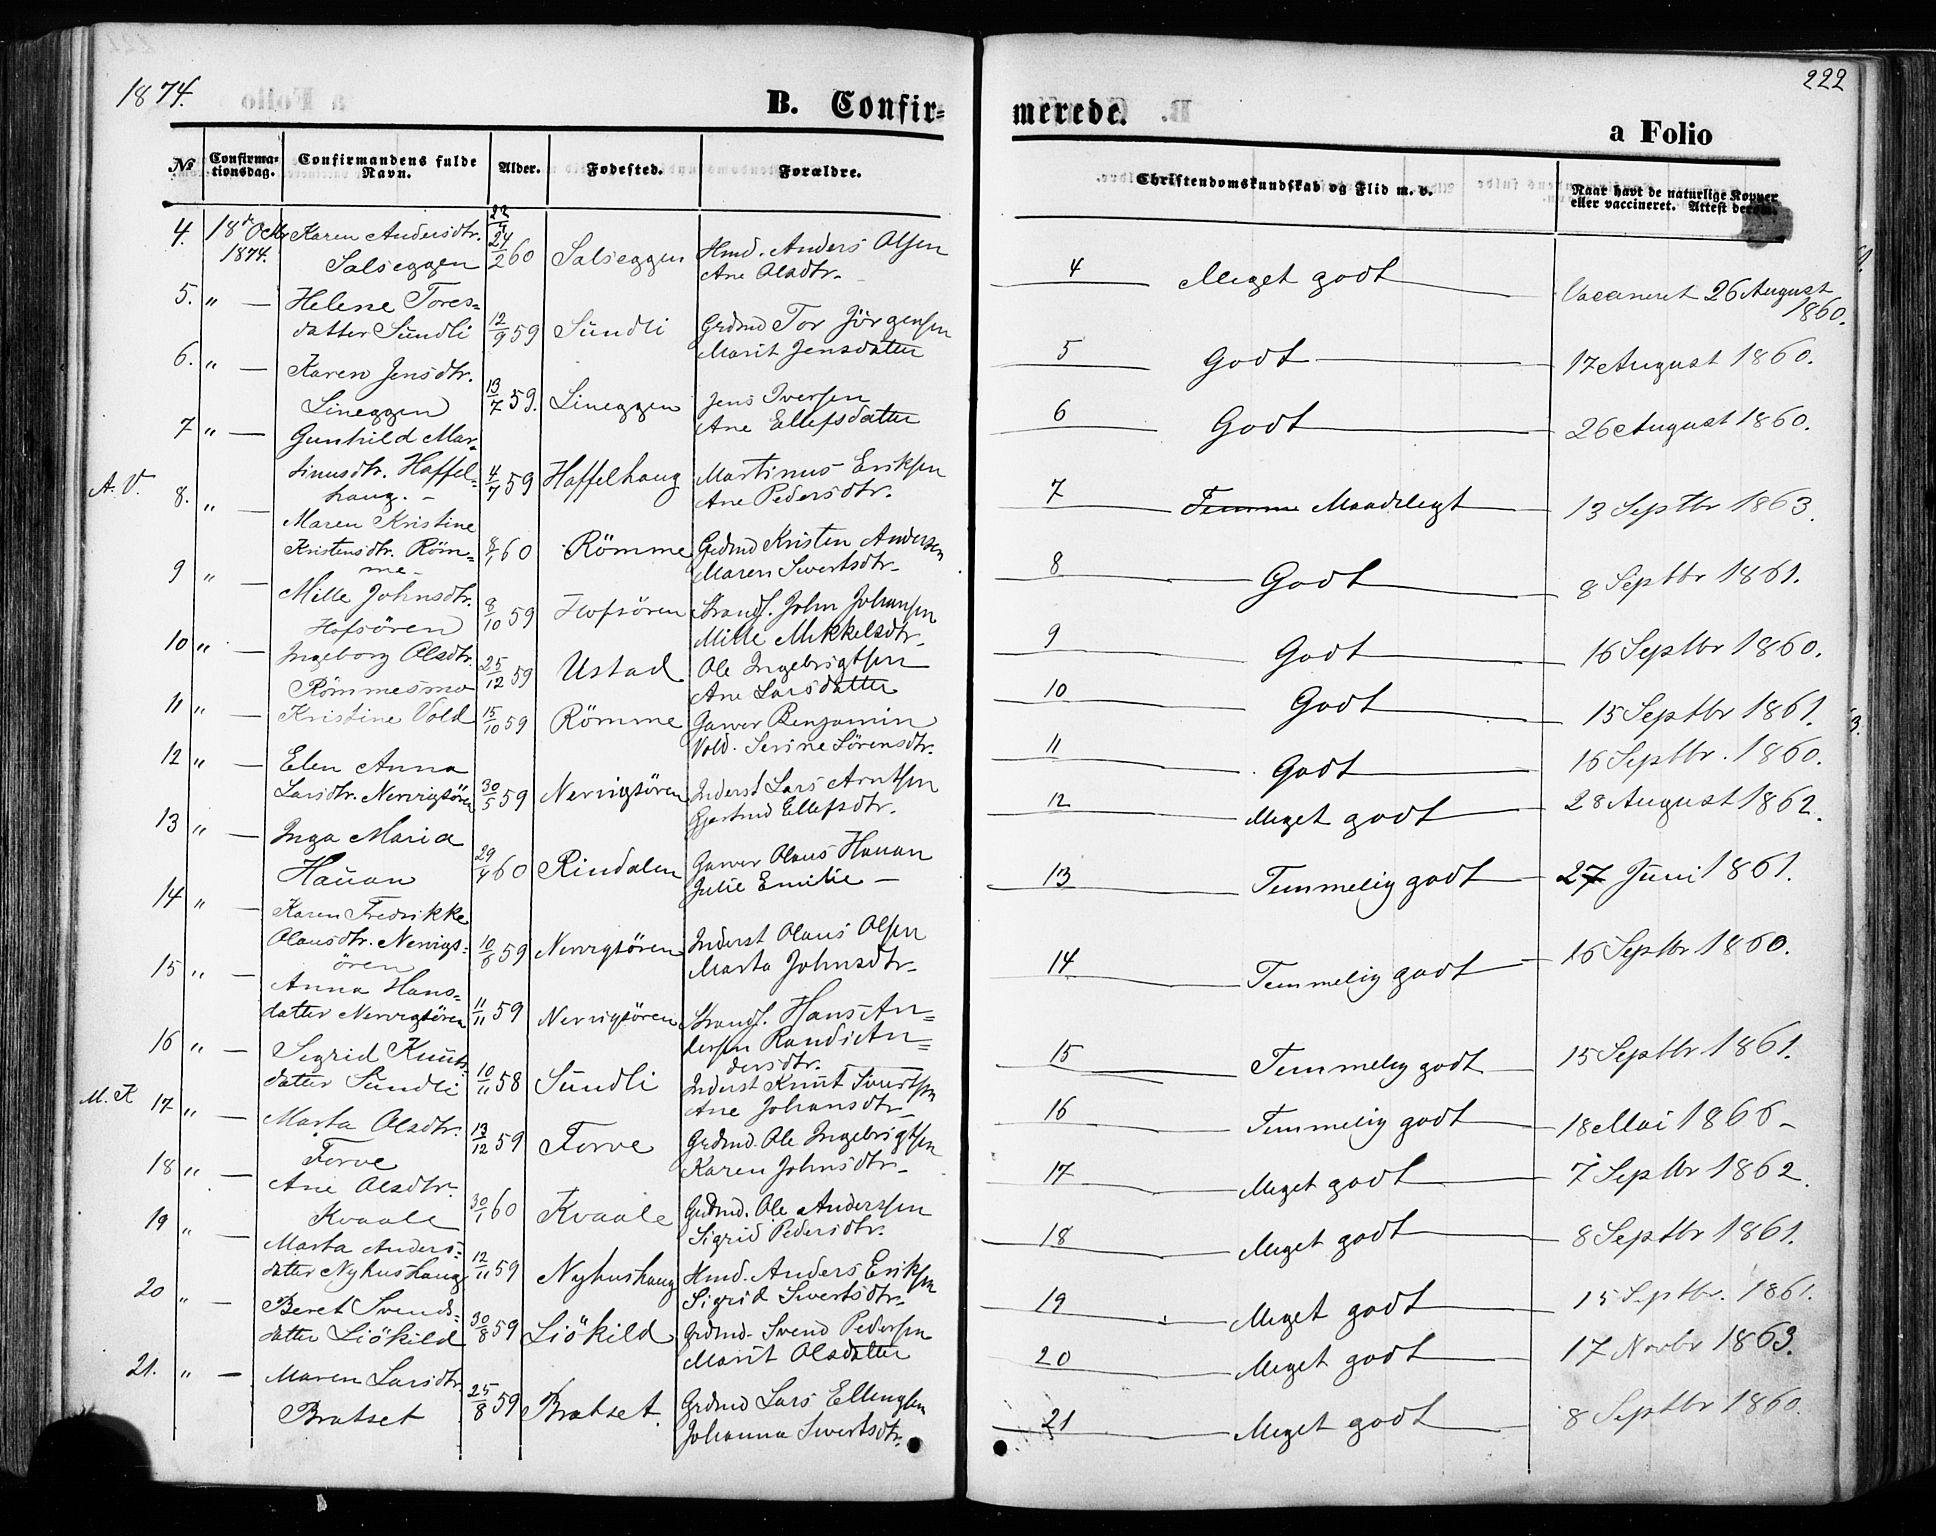 1874.
B. Confir-
No
Confirma-
tionsdag.
Confirmandens fulde
Navn.
Alder.
Fødested.
Forældre.
4. 18de Octbr Karen Andersdtr. 24/2 60 Salseggen Hmd. Anders Olsen
1874. Salseggen Ane Olsdtr.
5. " — Helene Tores- 12/9 59 Sundli Grdmd Tor Jørgensen
datter Sundli Marit Jensdatter
6. " — Karen Jensdtr. 13/7 59. Lineggen Jens Iversen
Lineggen Ane Ellefsdatter
7 " — Gunhild Mar-
tinusdtr. Haffel- 4/7 59 Haffelhaug Martinus Eriksen
haug. — Ane Pedersdtr.
A. V.
8. " — Maren Kristine
Kristensdtr. Röm- 8/1 60 Römme Grdmd Kristen Andersen
me — Maren Sivertsdtr.
9 " — Mille Johnsdtr. 8/10 59 Hofsören Strands. John Johansen
Hofsören Mille Mikkelsdtr.
10 " — Ingeborg Olsdtr. 25/12 59 Ustad Ole Ingebrigtsen
Römmesmo Ane Larsdatter
11 " — Kristine Vold 15/10 59 Römme Garver Benjamin
Vold. Serine Sörensdtr.
12 " — Elen Anna
Larsdtr. Nervigsören 30/5 59 Nervigsören Inderst Lars Arntsen
Gjertrud Ellefsdtr.
13 " — Inga Maria 29/4 60 Rindalen Garver Olaus Hauan
Hauan Julie Emilie —
14 " — Karen Fredrikke
Olausdtr. Nervigs- 59 Nervigsören Inderst Olaus Olsen
ören Marta Johnsdtr.
15 " — Anna Hans-
datter Nervigsören 11/11 59 Nervigsören Strands. Hans An-
dersen Randi An-
dersdtr.
16 " — Sigrid Knuts-
datter Sundli 10/11 58 Sundli Inderst Knut Sivertsen
Ane Johansdtr
M. K
17 " — Marta Olsdtr. 13/12 59 Forve Grdmd. Ole Ingebrigtsen
Forve Karen Johnsdtr.
18 " — Ane Olsdtr. 30/1 60 Kvaale Grdmd. Ole Anderssen
Kvaale Sigrid Pedersdtr.
19 " — Marta Anders-
datter Nyhushaug 12/11 59 Nyhushaug Hmd. Anders Eriksen
Sigrid Sivertsdtr.
20 " — Beret Svends-
datter Liökild 30/8 59 Liökild Grdmd. Svend Pedersen
Marit Olsdatter
21. " — Maren Larsdtr. 25/8 59 Bratset. Grdmd Lars Ellingsen
Bratset Johanna Sivertsdtr.
222
merede.
a Folio
Christendomskundskab og Flid m. v.
Naar havt de naturlige Kopper
eller vaccineret. Attest derom.
4 Meget godt Vaccineret 26 August
1860.
5 Godt 17 August 1860.
6 Godt 26 August 1860.
7 Maadelegt 13 Septbr 1863.
8 Godt 8 Septbr 1861.
9 Godt 16 Septbr 1860.
10 Godt 15 Septbr 1861.
11 Godt 16 Septbr. 1860.
12 Meget godt 28 August 1862.
13 Temmelig godt 27 Juni 1861.
14 Temmelig godt 16 Septbr 1860.
15 Temmelig godt 15 Septbr 1861.
16 Temmelig godt 18 Mai 1866 —
17 Meget godt 7 Septbr 1862.
18 Meget godt 8 Septbr 1861.
19 Meget godt 15 Septbr. 1861.
20 Meget godt 17 Novbr 1863.
21 Meget godt 8 Septbr 1860.